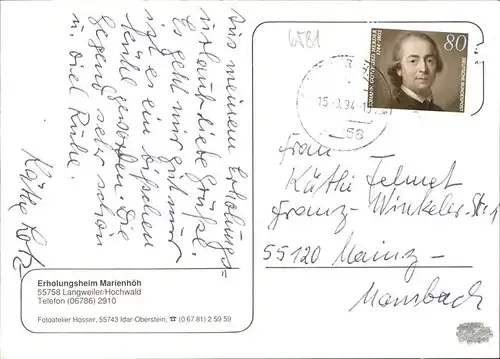 Aus meinem Erholungs-
urlaub liebe Grüße.
Es geht mir gut nur
ist es ein bißchen
kühl geworden. Die
Gegend sehr schön
u. viel Ruhe.
Käthe Lotz
Erholungsheim Marienhöh
55758 Langweiler/Hochwald
Telefon (06786) 2910
Fotoatelier Hosser, 55743 Idar-Oberstein, ☎ (0 67 81) 2 59 59
6581
80
DEUTSCHE BUNDESPOST
JOHANN GOTTFRIED HERDER
1744-1803
56
Frau
Käthi
Franz-Winkeler-Str.
55120 Mainz-
Mombach